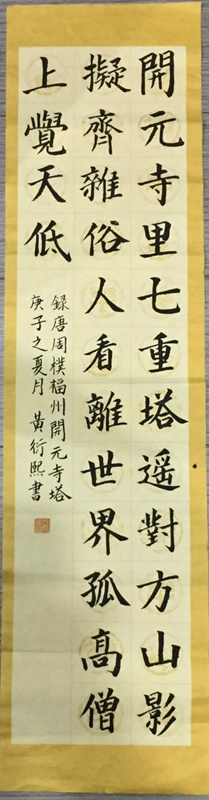 開元寺里七重塔遥對方山影
擬齊雜俗人看離世界孤高僧
上覺天低
録唐周樸福州開元寺塔
庚子之夏月 黄衍熙書